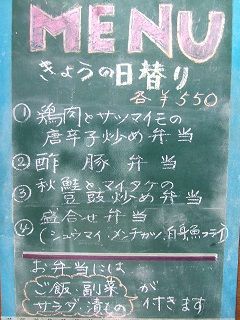 MENU
きょうの日替り
各¥550
① 鶏肉とサツマイモの
唐辛子炒め弁当
② 酢豚弁当
③ 秋鮭とマイタケの
豆鼓炒め弁当
④ 盛合せ弁当
(シュウマイ、メンチカツ、白身魚フライ)
お弁当には
ご飯・副菜
サラダ・漬もの
が付きます